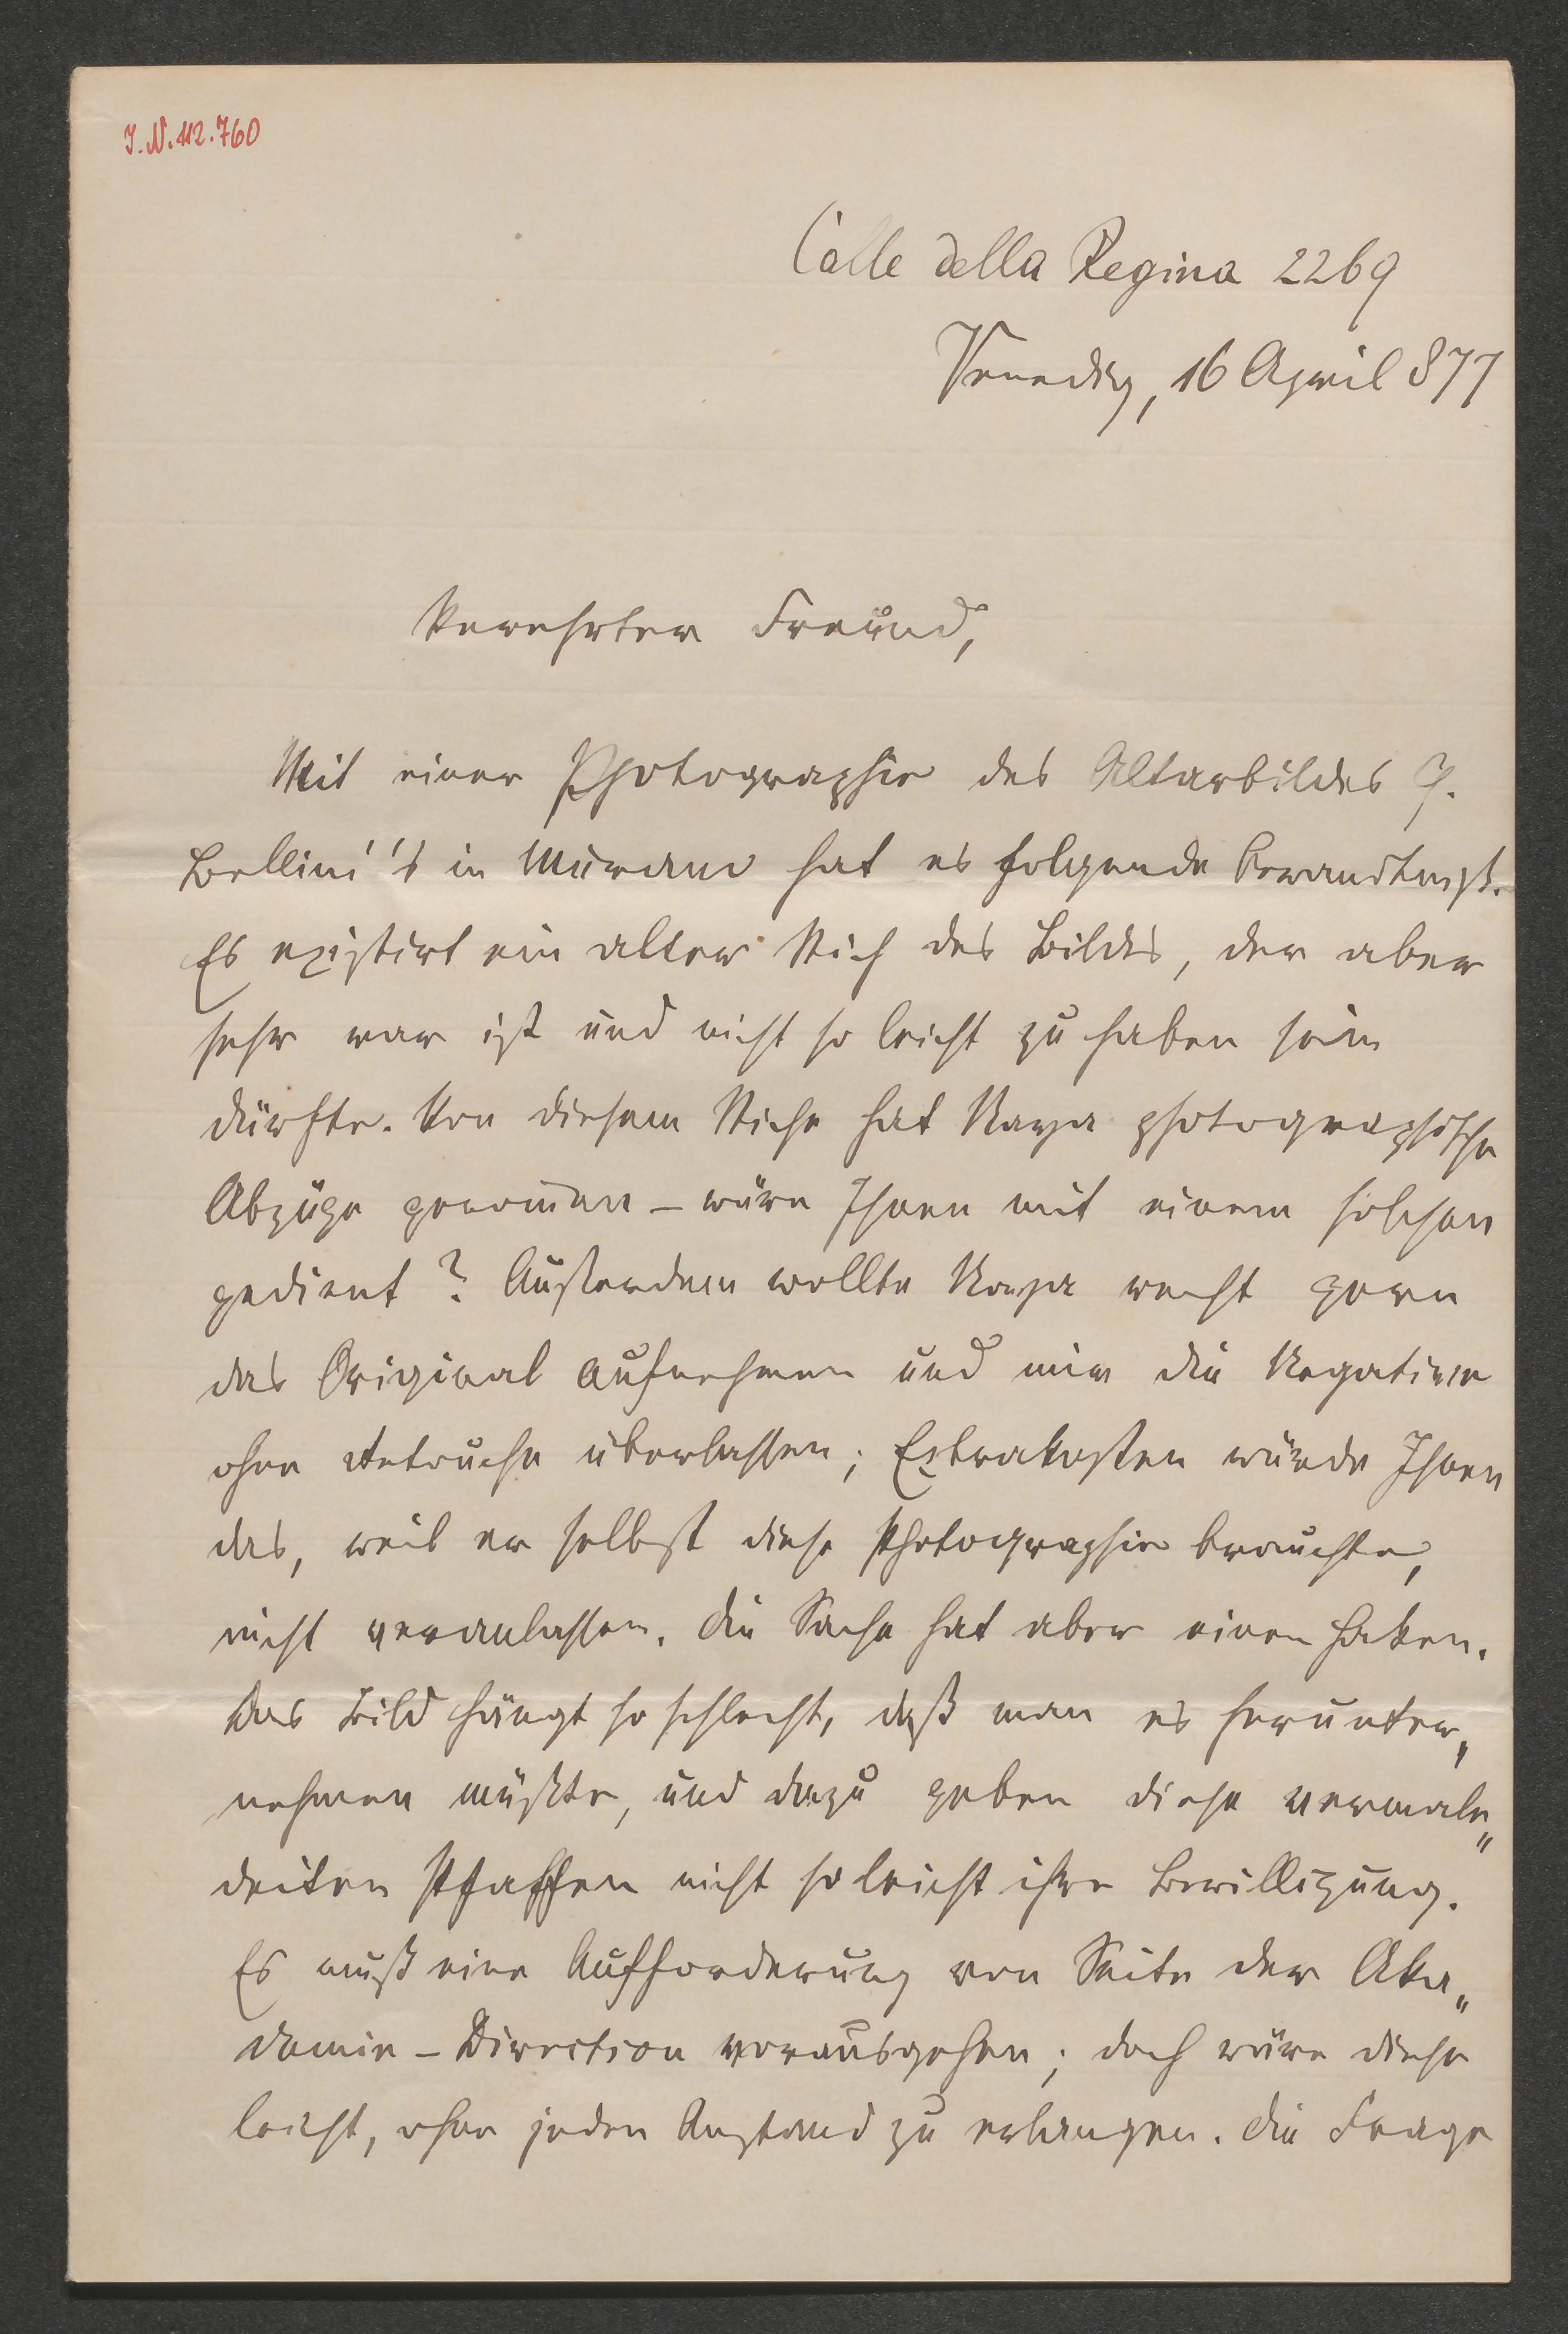 I.N.112.760
Calle della Regina 2269
Venedig, 16 April 877
Verehrter Freund,
Mit einer Photographie des Altarbildes J.
Bellini's in Murano hat es folgende Bewandtniß.
Es existirt ein alter Stich des Bildes, der aber
sehr rar ist und nicht so leicht zu haben sein
dürfte. Von diesem Stiche hat Naya photographische
Abzüge genommen – wäre Ihnen mit einem solchen
gedient? Außerdem wollte Naya recht gern
das Original aufnehmen und mir die Negative
ohne Retouche überlassen; Extrakosten würde Ihnen
das, weil er selbst diese Photographie brauchte,
nicht veranlassen. Die Sache hat aber einen Haken.
Das Bild hängt so schlecht, daß man es herunter„
nehmen müßte, und dazu geben diese vermale„
deiten Pfaffen nicht so leicht ihre Bewilligung.
Es muß eine Aufforderung von Seite der Aka„
demie-Direction vorausgehen; doch wäre diese
leicht, ohne jeden Anstand zu erlangen. Die Frage